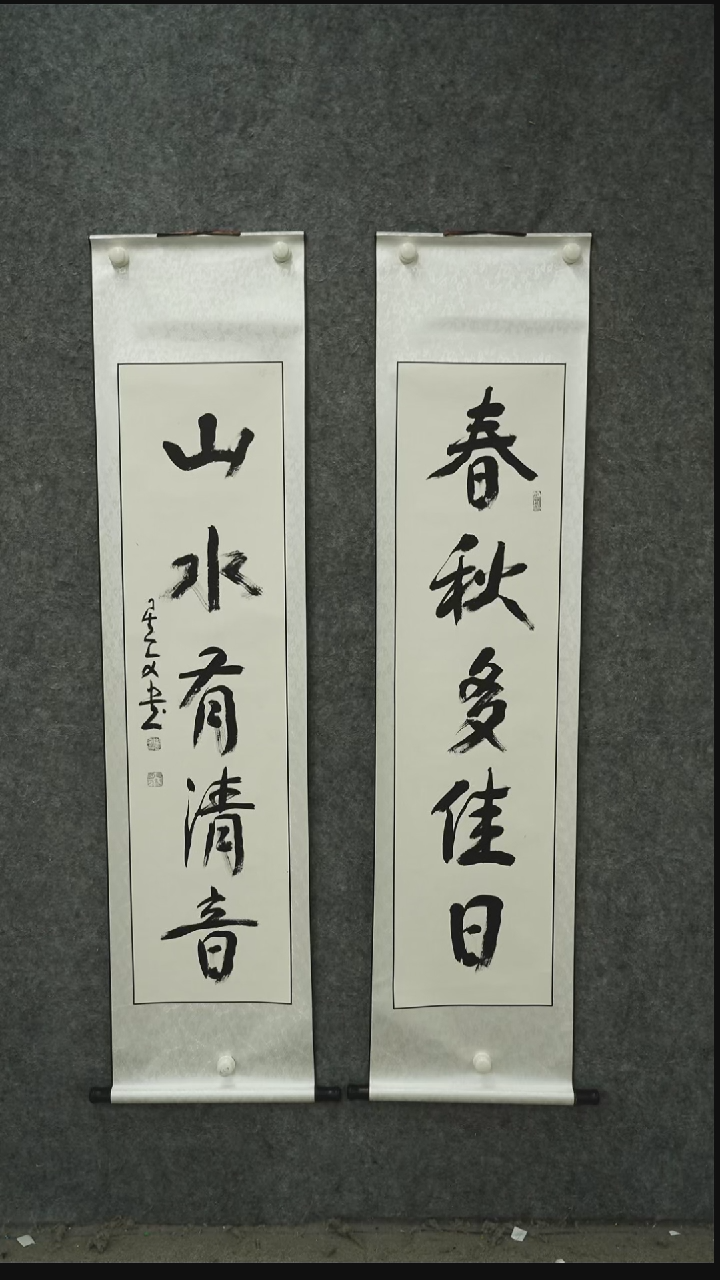 春秋多佳日
山水有清音